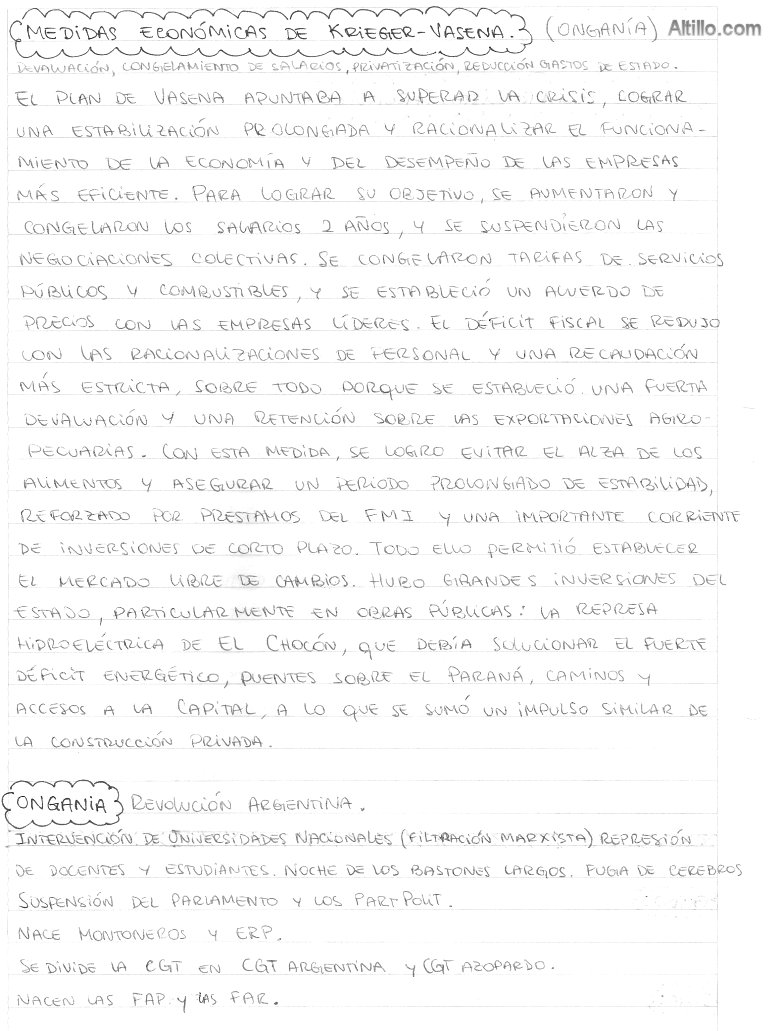 MEDIDAS ECONÓMICAS DE KRIEGER-VASENA. (ONGANÍA) Altillo.com
DEVALUACIÓN, CONGELAMIENTO DE SALARIOS, PRIVATIZACIÓN, REDUCCIÓN GASTOS DE ESTADO.
EL PLAN DE VASENA APUNTABA A SUPERAR LA CRISIS, LOGRAR
UNA ESTABILIZACIÓN PROLONGADA Y RACIONALIZAR EL FUNCIONA-
MIENTO DE LA ECONOMÍA Y DEL DESEMPEÑO DE LAS EMPRESAS
MÁS EFICIENTE. PARA LOGRAR SU OBJETIVO, SE AUMENTARON Y
CONGELARON LOS SALARIOS 2 AÑOS, Y SE SUSPENDIERON LAS
NEGOCIACIONES COLECTIVAS. SE CONGELARON TARIFAS DE SERVICIOS
PÚBLICOS Y COMBUSTIBLES, Y SE ESTABLECIÓ UN ACUERDO DE
PRECIOS CON LAS EMPRESAS LÍDERES. EL DÉFICIT FISCAL SE REDUJO
CON LAS RACIONALIZACIONES DE PERSONAL Y UNA RECAUDACIÓN
MÁS ESTRICTA, SOBRE TODO PORQUE SE ESTABLECIÓ UNA FUERTA
DEVALUACIÓN Y UNA RETENCIÓN SOBRE LAS EXPORTACIONES AGRO-
PECUARIAS. CON ESTA MEDIDA, SE LOGRO EVITAR EL ALZA DE LOS
ALIMENTOS Y ASEGURAR UN PERIODO PROLONGADO DE ESTABILIDAD,
REFORZADO POR PRESTAMOS DEL FMI Y UNA IMPORTANTE CORRIENTE
DE INVERSIONES DE CORTO PLAZO. TODO ELLO PERMITIÓ ESTABLECER
EL MERCADO LIBRE DE CAMBIOS. HUBO GRANDES INVERSIONES DEL
ESTADO, PARTICULARMENTE EN OBRAS PÚBLICAS: LA REPRESA
HIDROELÉCTRICA DE EL CHOCÓN, QUE DEBÍA SOLUCIONAR EL FUERTE
DÉFICIT ENERGÉTICO, PUENTES SOBRE EL PARANÁ, CAMINOS Y
ACCESOS A LA CAPITAL, A LO QUE SE SUMÓ UN IMPULSO SIMILAR DE
LA CONSTRUCCIÓN PRIVADA.
ONGANIA REVOLUCIÓN ARGENTINA.
INTERVENCIÓN DE UNIVERSIDADES NACIONALES (FILTRACIÓN MARXISTA) REPRESIÓN
DE DOCENTES Y ESTUDIANTES. NOCHE DE LOS BASTONES LARGOS. FUGA DE CEREBROS
SUSPENSIÓN DEL PARLAMENTO Y LOS PART POLIT.
NACE MONTONEROS Y ERP.
SE DIVIDE LA CGT EN CGT ARGENTINA Y CGT AZOPARDO.
NACEN LAS FAP Y LAS FAR.